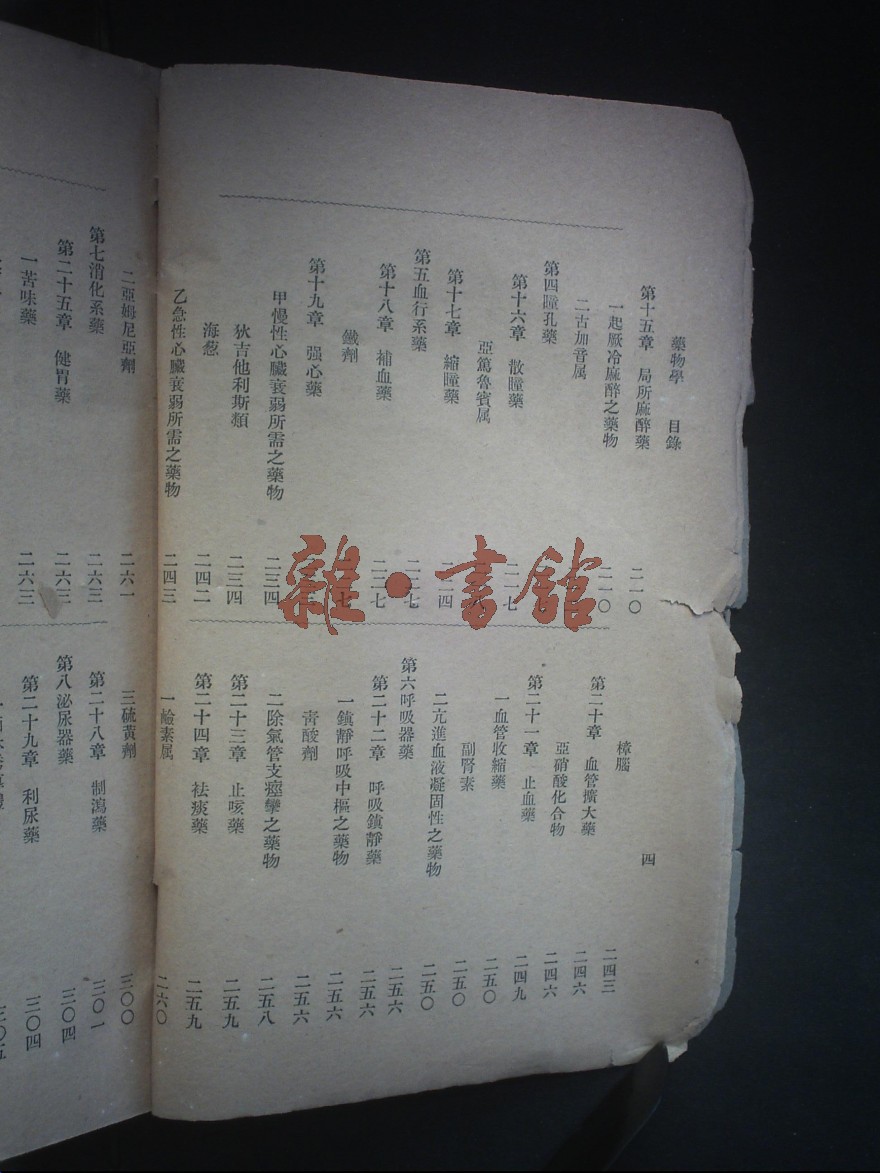 藥物學 目錄
四
第十五章 局所麻醉藥 二一〇
一起厥冷麻醉之藥物 二一〇
二古加음属
第四瞳孔藥
第十六章 散瞳藥 二一七
亞篤魯賓属
第十七章 縮瞳藥 二二四
第五血行系藥 二二七
第十八章 補血藥 二二七
鐵劑
第十九章 强心藥
甲慢性心臟衰弱所需之藥物 二三四
狄吉他利斯類 二三四
海葱 二四二
乙急性心臟衰弱所需之藥物 二四三
樟腦 二四三
第二十章 血管擴大藥 二四六
亞硝酸化合物 二四六
第二十一章 止血藥 二四九
一血管收縮藥 二五〇
副腎素 二五〇
二亢進血液凝固性之藥物 二五〇
第六呼吸器藥 二五六
第二十二章 呼吸鎮靜藥 二五六
一鎮靜呼吸中樞之藥物 二五六
靑酸劑 二五六
二除氣管支痙攣之藥物 二五八
第二十三章 止咳藥 二五九
第二十四章 祛痰藥 二五九
一鹼素属 二六〇
二亞姆尼亞劑 二六一
第七消化系藥 二六三
第二十五章 健胃藥 二六三
一苦味藥 二六三
三硫黃劑 三〇〇
第二十八章 制瀉藥 三〇一
第八泌尿器藥 三〇四
第二十九章 利尿藥 三〇四
三〇五
雜·書館